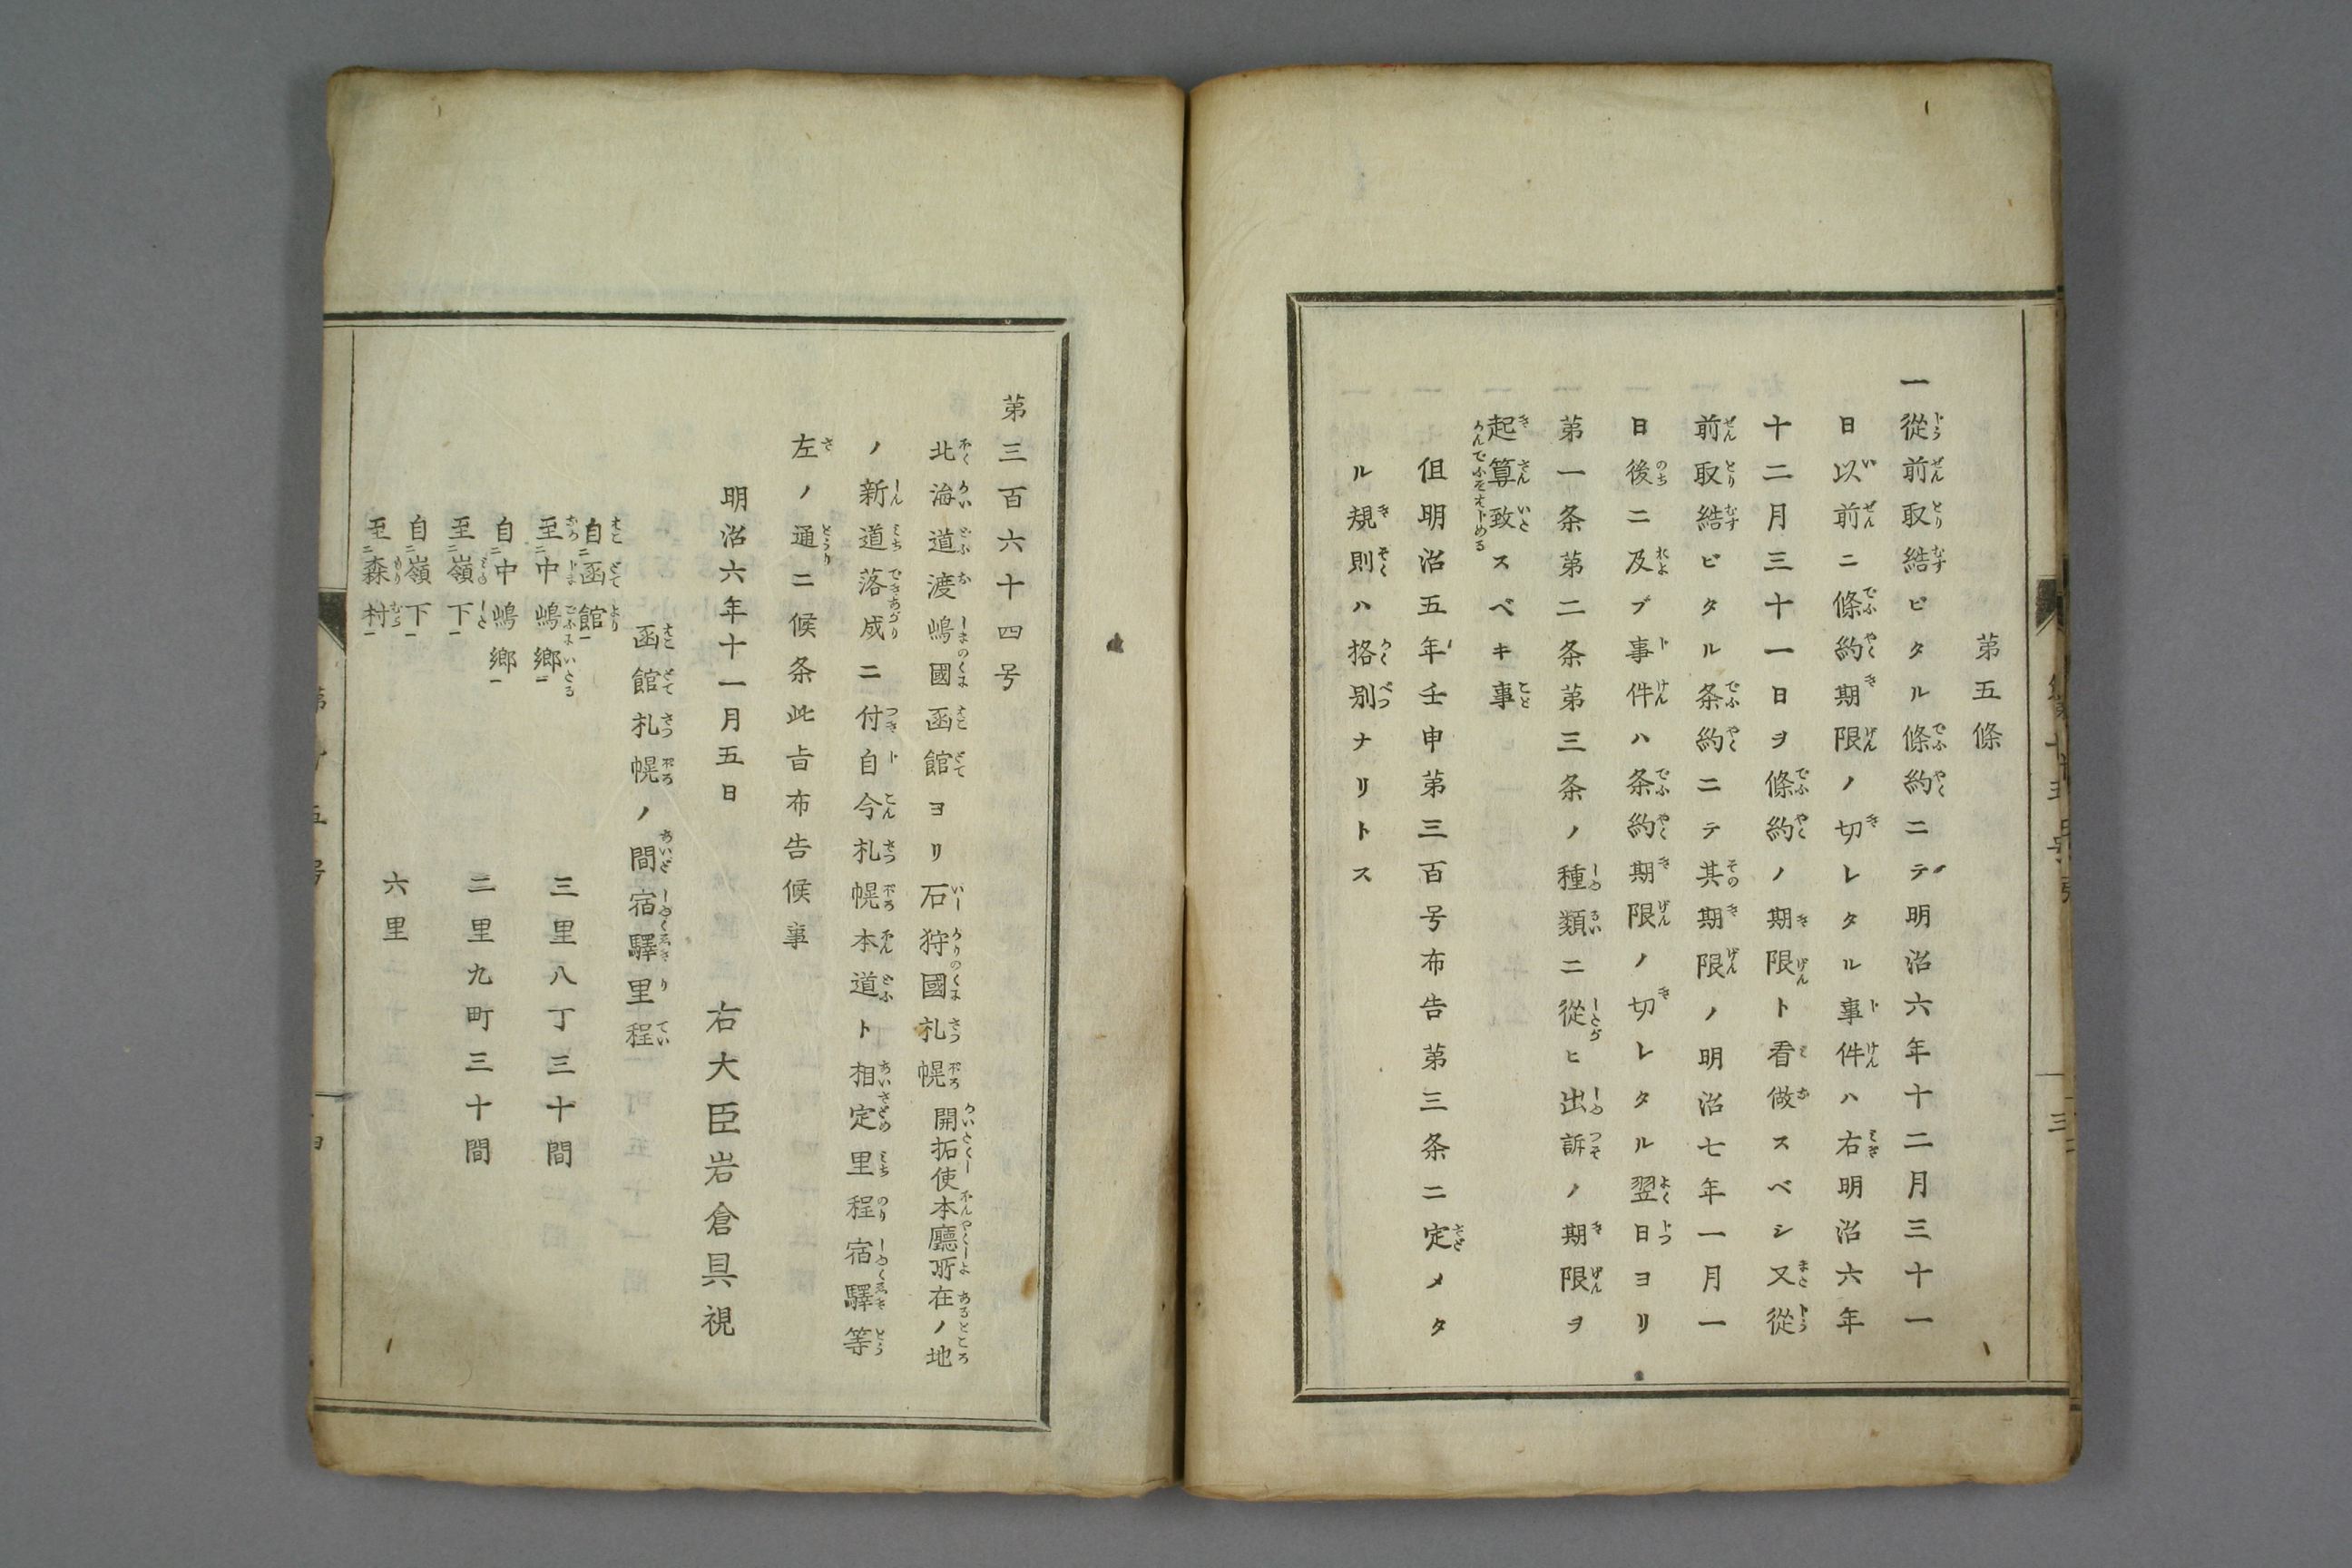 第五條
一從前取結ピタル條約ニテ明治六年十二月三十一
日以前ニ條約期限ノ切レタル事件ハ右明治六年
十二月三十一日ヲ條約ノ期限ト看做スベシ又從
前取結ビタル条約ニテ其期限ノ明治七年一月一
日後ニ及ブ事件ハ条約期限ノ切レタル翌日ヨリ
第一条第二条第三条ノ種類ニ從ヒ出訴ノ期限ヲ
起算致スベキ事
但明治五年壬申第三百号布告第三条ニ定メタ
ル規則ハ格別ナリトス
第三百六十四号
北海道渡嶋國函館ヨリ石狩國札幌開拓使本廳所在ノ地
ノ新道落成ニ付自今札幌本道ト相定里程宿驛等
左ノ通ニ候条此旨布告候事
明治六年十一月五日
右大臣岩倉具視
函館札幌ノ間宿驛里程
自二函館一
至二中嶋鄉一
三里八丁三十間
自二中嶋鄉一
至二嶺下一
二里九町三十間
自二嶺下一
至二森村一
六里